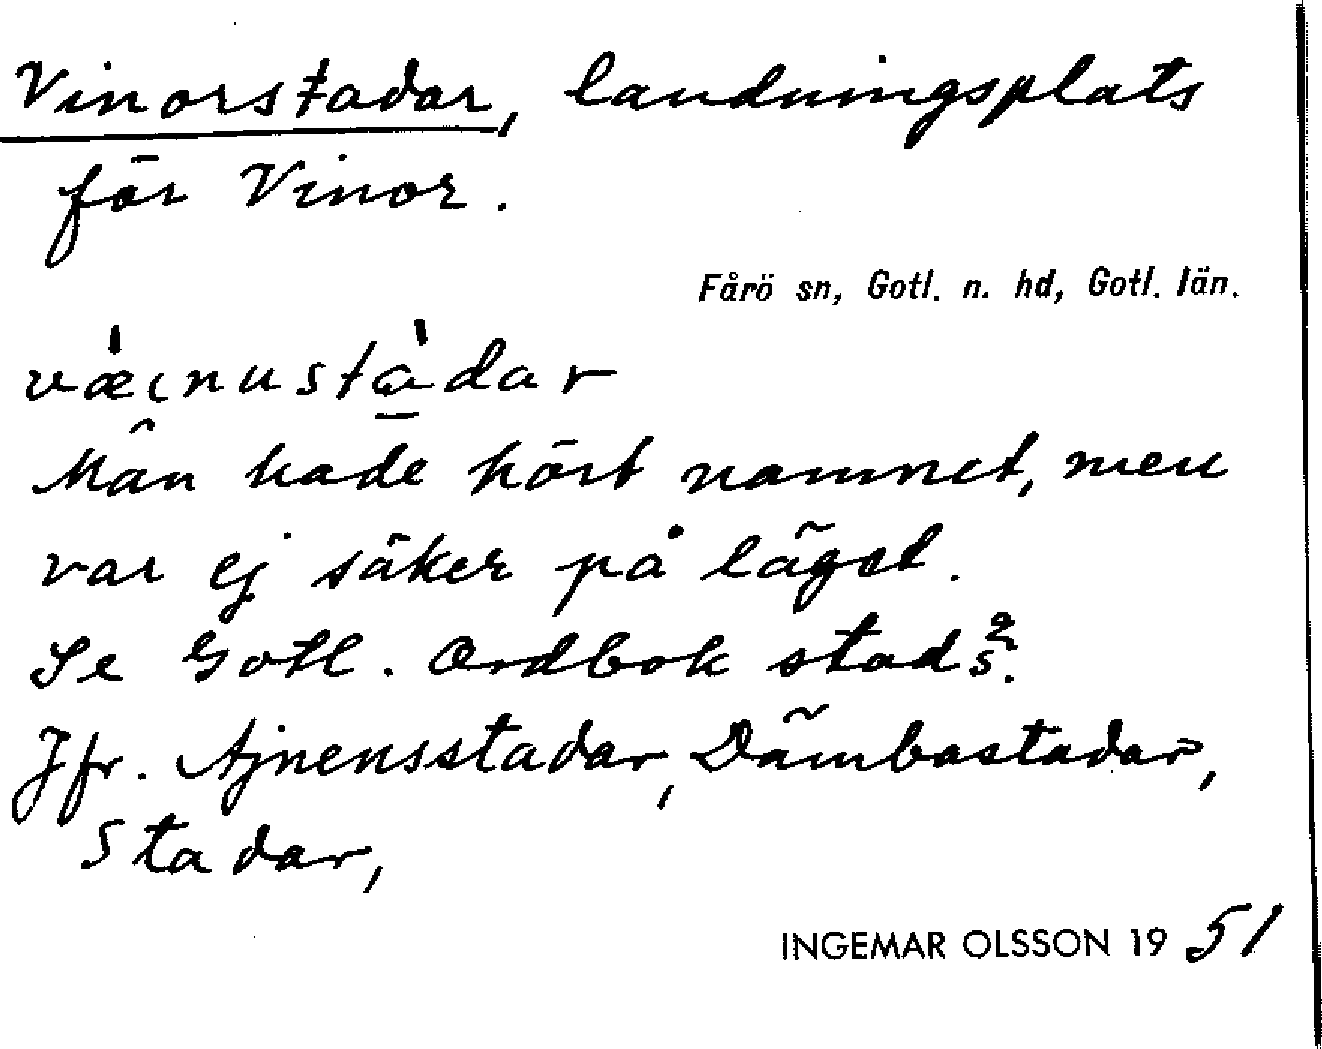 Vinorstadar, landningsplats
för Vinor.
Fårö sn, Gotl. n. hd, Gotl. län.
væ̀ınustà̱dar
Man hade hört namnet, men
var ej säker på läget.
Se Gotl. Ordbok stad s.
Jfr. Ajnensstadar, Dämbastadar,
Stadar,
INGEMAR OLSSON 19 51